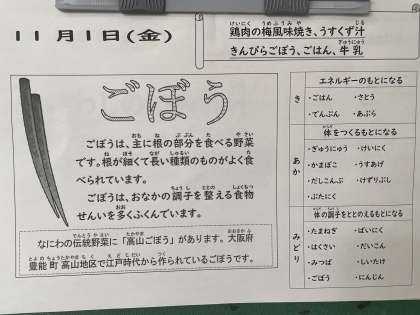 11月1日(金)
鶏肉の梅風味焼き、うすくず汁
きんぴらごぼう、ごはん、牛乳
ごぼう
ごぼうは、主に根の部分を食べる野菜
です。根が細くて長い種類のものがよく食
べられています。
ごぼうは、おなかの調子を整える食物
せんいを多くふくんでいます。
なにわの伝統野菜に「高山ごぼう」があります。大阪府
豊能町高山地区で江戸時代から作られているごぼうです。
き
エネルギーのもとになる
・ごはん ・さとう
・でんぷん ・あぶら
あか
体をつくるもとになる
・ぎゅうにゅう ・けいにく
・かまぼこ ・うすあげ
・だしこんぶ ・けずりぶし
・ぶたにく
みどり
体の調子をととのえるもとになる
・たまねぎ ・ばいにく
・はくさい ・だいこん
・みつば ・しいたけ
・ごぼう ・にんじん